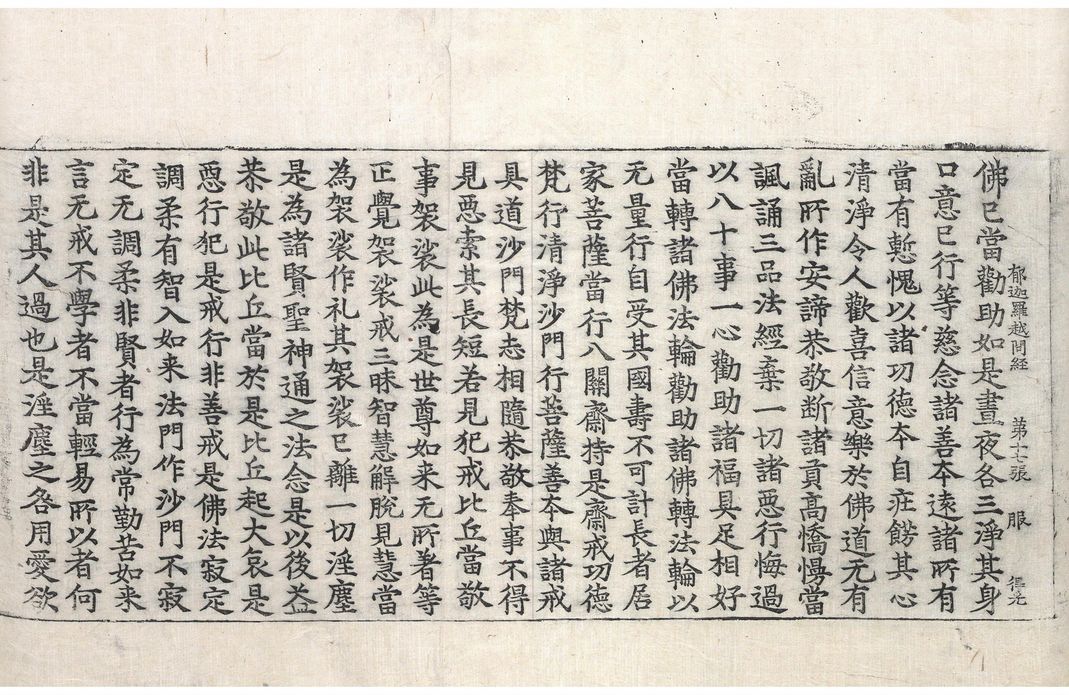 郁迦羅越問経 第十七張 服
佛已當勸助如是晝夜各三淨其身
口意已行等慈念諸善夲遠諸所有
當有慙愧以諸功德夲自莊餝其心
清淨令人歡喜信意樂於佛道无有
亂所作安諦恭敬断諸貢高憍慢當
諷誦三品法經棄一切諸惡行悔過
以八十事一心勸助諸福具足相好
當轉諸佛法輪勸助諸佛轉法輪以
无量行自受其國壽不可計長者居
家菩薩當行八關齋持是齋戒功德
梵行清淨沙門行菩薩善夲與諸戒
具道沙門梵志相隨恭敬奉事不得
見惡索其長短若見犯戒比丘當敬
事袈裟此為是世尊如来无所著等
正覺袈裟戒三昧智慧解脫見慧當
為袈裟作礼其袈裟已離一切淫塵
是為諸賢聖神通之法念是以後益
恭敬此比丘當於是比丘起大哀是
惡行犯是戒行非善戒是佛法寂定
調柔有智入如来法門作沙門不寂
定无調柔非賢者行為常勤苦如来
言无戒不學者不當輕易所以者何
非是其人過也是淫塵之咎用愛欲